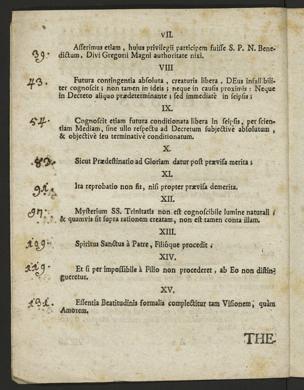 VII.
39. Asserimus etiam, huius privilegii participem fuisse S. P. N. Bene-
dictum, Divi Gregorii Magni authoritate nixi.
VIII
43. Futura contingentia absoluta, creaturis libera, DEus infallibili-
ter cognoscit; non tamen in ideis; neque in causis proximis: Neque
in Decreto aliquo prædeterminante; sed immediatè in seipsis:
IX.
54. Cognoscit etiam futura conditionata libera in seipsis, per scien-
tiam Mediam, sine ullo respectu ad Decretum subjectivè absolutum,
& objectivè seu terminativè conditionatum.
X.
83. Sicut Prædestinatio ad Gloriam datur post prævisa merita;
XI.
91. Ita reprobatio non fit, nisi propter prævisa demerita.
XII.
97. Mysterium SS. Trinitatis non est cognoscibile lumine naturali;
& quamvis sit supra rationem creatam, non est tamen conta illam.
XIII.
109. Spiritus Sanctus à Patre, Filióque procedit;
XIV.
119. Et si per impossibile à Filio non procederet, ab Eo non distin-
gueretur.
XV.
131. Essentia Beatitudinis formalis complectitur tam Visionem, quàm
Amorem.
THE-